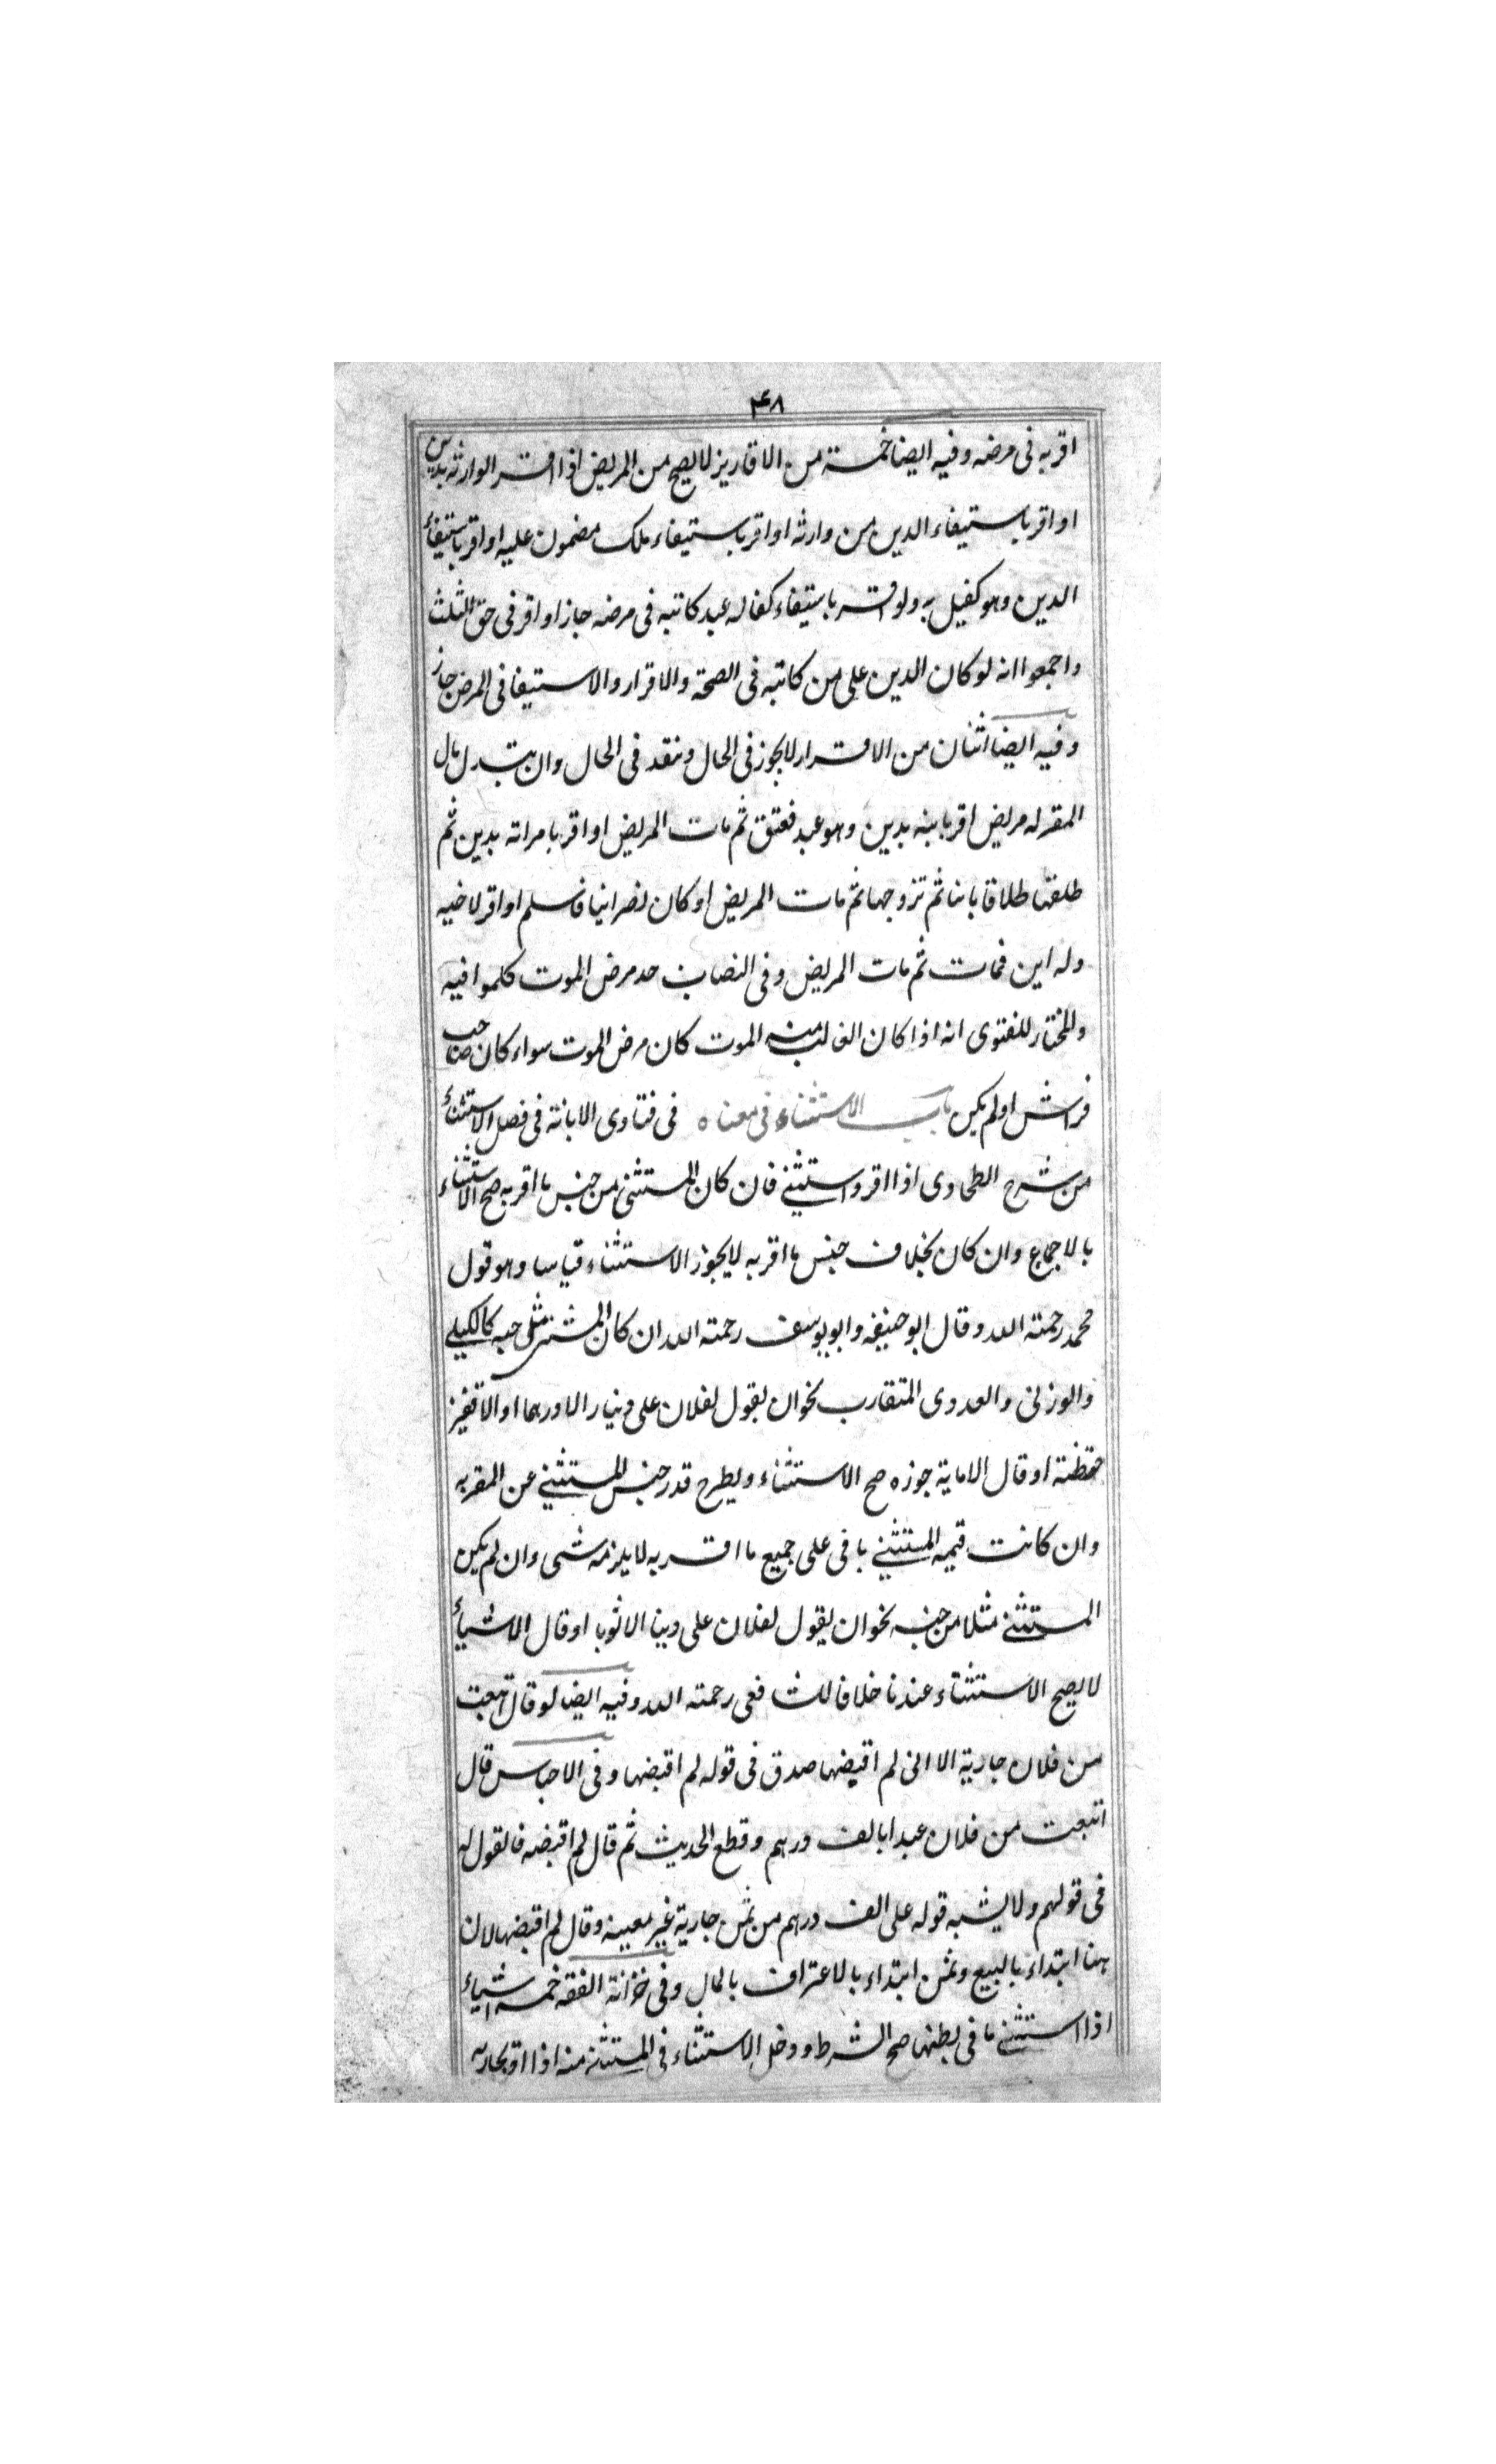 ۴۶۸
اقر به فی مرضه وفیه ایضا خمسة من الاقاریز لا یصح من المریض اذا اقر الوارثه بدین
او اقر باستیفاء الدین من وارثه او اقر باستیفاء ملک مضمون علیه او اقر باستیفاء
الدین وهو کفیل به ولو اقر باستیفاء کفاله عبد کاتبه فی مرضه جاز او اقر فی حق الثلث
واجمعوا انه لو کان الدین علی من کاتبه فی الصحة والاقرار والاستیفا فی المرض جاز
وفیه ایضا اثنان من الاقرار لا یجوز فی الحال وینقد فی الحال وان یتبدل مال
المقر له مریض اقر بابنه بدین وهو عبد فعتق ثم مات المریض او اقر بامراته بدین ثم
طلقها طلاقا باینا ثم تزوجها ثم مات المریض او کان نصرانیا فاسلم او اقر لاخیه
وله ابن فمات ثم مات المریض وفی النصاب حد مرض الموت کلموا فیه
والمختار للفتوی انه اذا کان الغالب منه الموت کان مرض الموت سواء کان صاحب
فراش او لم یکن باب الاستثناء فی معناه فی فتاوی الابانة فی فصل الاستثناء
من شرح الطحاوی اذا اقر واستثنی فان کان المستثنی من جنس ما اقر به صح الاستثناء
بالاجماع وان کان بخلاف جنس ما اقر به لا یجوز الاستثناء قیاسا وهو قول
محمد رحمته الله وقال ابو حنیفه وابو یوسف رحمته الله ان کان المستثنی مثل جنبه کالکیلی
والوزنی والعددی المتقارب نحو ان یقول لفلان علی دینار الا درهما او الا قفیز
حنطة او قال الا مایة جوزه صح الاستثناء ویطرح قدر جنس المستثنی عن المقر به
وان کانت قیمه المستثنی باقی علی جمیع ما اقر به لا یلزمه شی وان لم یکن
المستثنی مثلا من جنسه نحو ان یقول لفلان علی دینا الا ثوبا او قال الا شیأ
لا یصح الاستثناء عندنا خلافا للشافعی رحمته الله وفیه ایضا لو قال ابتعت
من فلان جاریة الا انی لم اقبضها صدق فی قوله لم اقبضها وفی الاجناس قال
ابتعت من فلان عبدا بالف درهم وقطع الحدیث ثم قال لم اقبضه فالقول له
فی قولهم ولا یشبه قوله علی الف درهم من ثمن جاریة غیر معینه وقال لم اقبضها لان
هنا ابتداء بالبیع وثمن ابتداء بالاعتراف بالمال وفی خزانة الفقه خمسة اشیاء
اذا استثنی ما فی بطنها صح الشرط ودخل الاستثناء فی المستثنی منه اذا اقر بجاریه